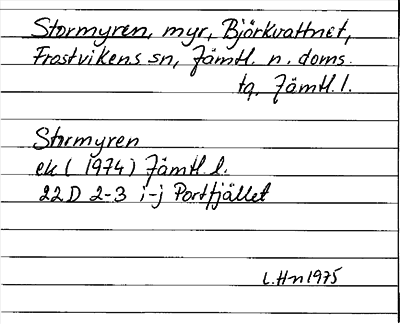 Stormyren, myr, Björkvattnet,
Frostvikens sn, Jämtl. n. doms.
tg, Jämtl. l.
Stormyren
ek ( 1974) Jämtl. l.
22D 2-3 i-j Portfjället
L.Hn 1975